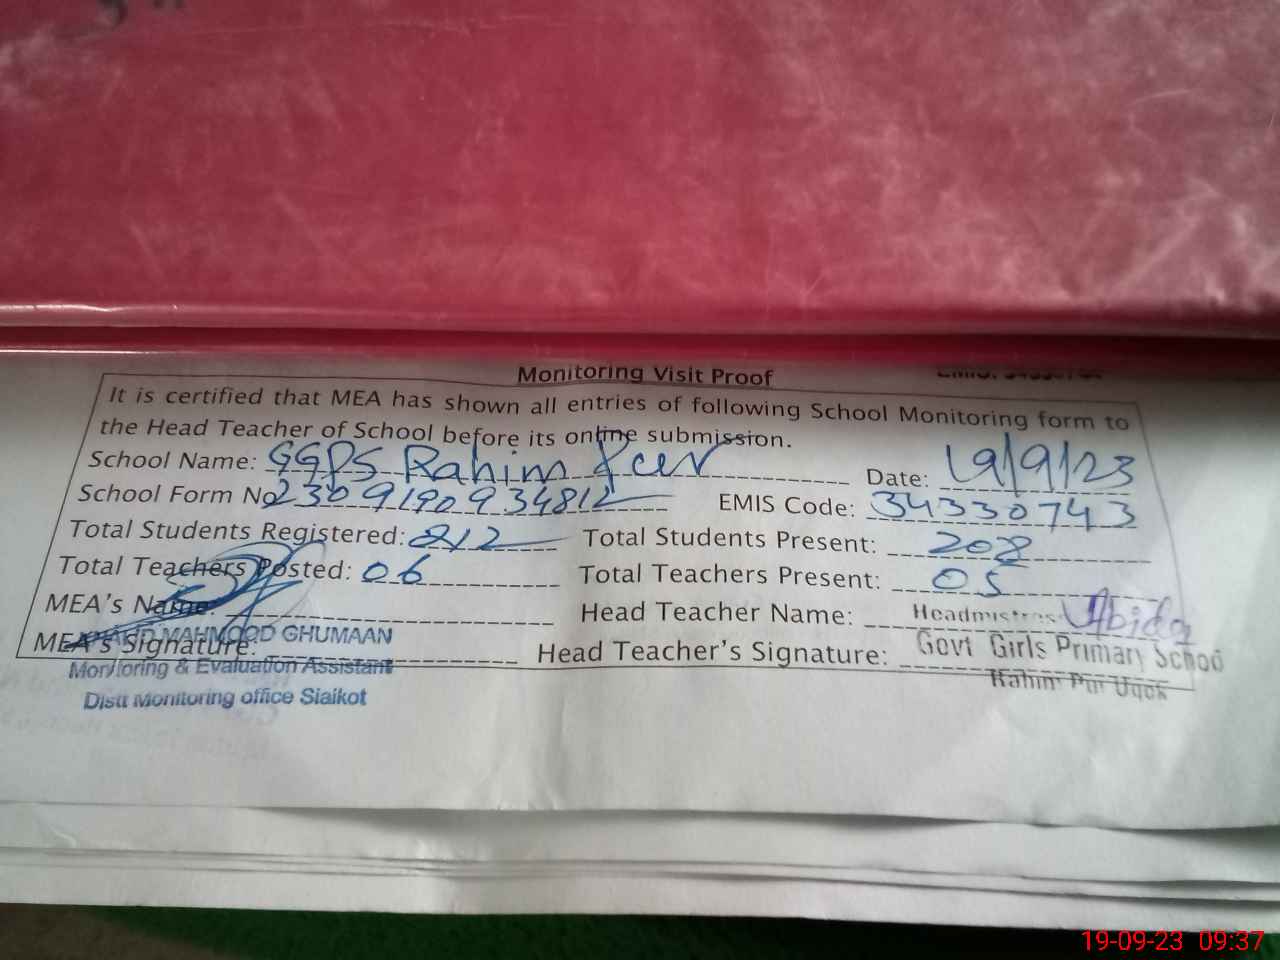 Monitoring Visit Proof
It is certified that MEA has shown all entries of following School Monitoring form to
the Head Teacher of School before its online submission.
School Name: GGPS Rahim Pur Date: 19/9/23
School Form No 2309190934812 EMIS Code: 34330743
Total Students Registered: 212 Total Students Present: 208
Total Teachers Posted: 06 Total Teachers Present: 05
MEA's Name: Head Teacher Name: Headmistress Abida
MEA's Signature: MAHMOOD GHUMAAN Head Teacher's Signature: Govt Girls Primary School
Monitoring & Evaluation Assistant Rahim Pur
Distt Monitoring office Sialkot
19-09-23 09:37